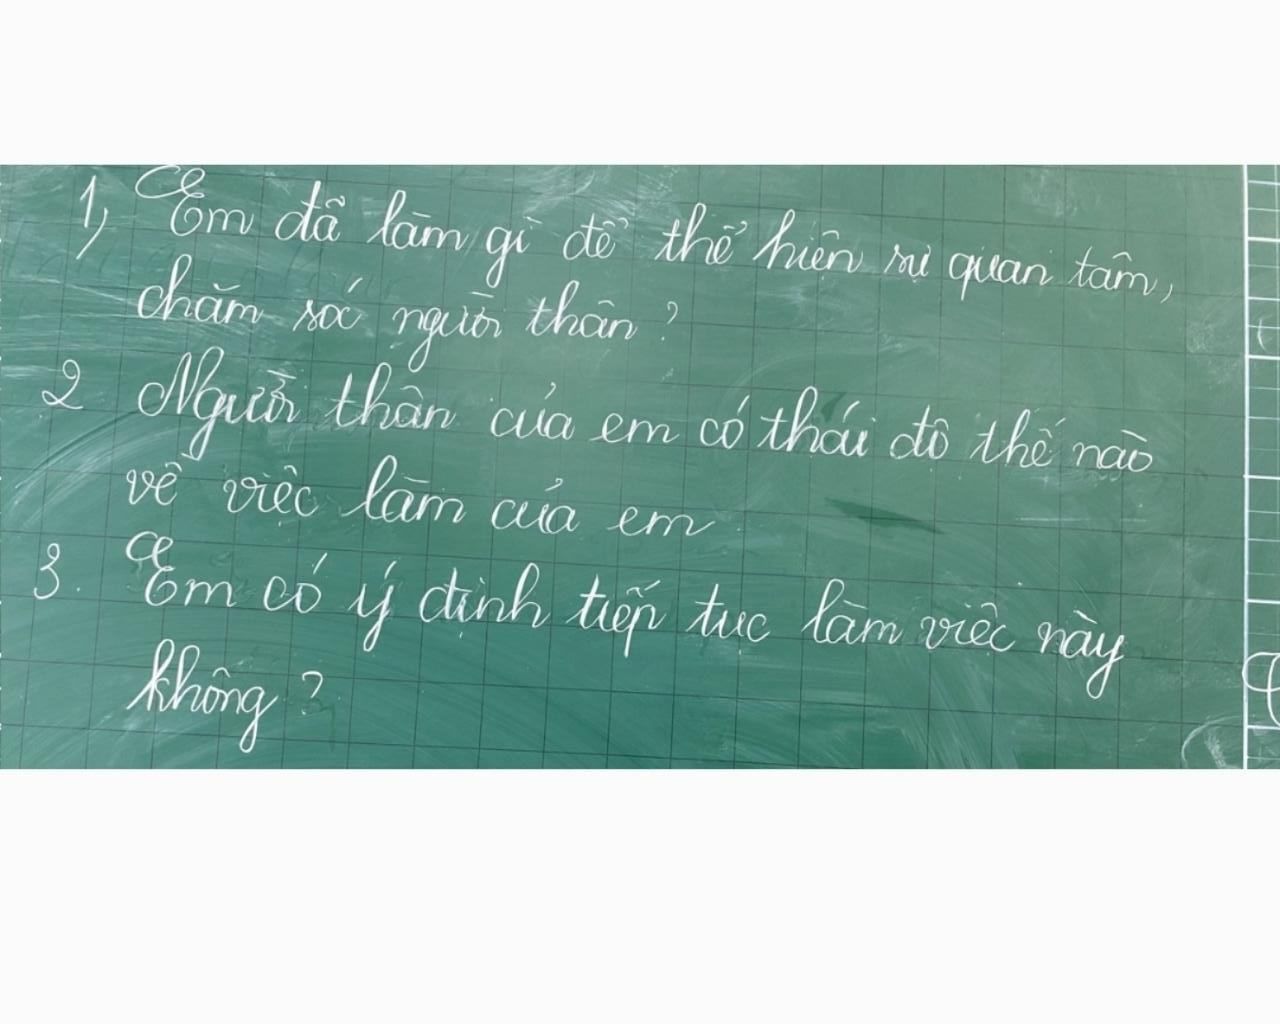 1, Em đã làm gì để thể hiện sự quan tâm,
chăm soć người thân?
2 Người thân của em có thái độ thế nào
về việc làm của em
3. Em có ý định tiếp tục làm việc này
không?